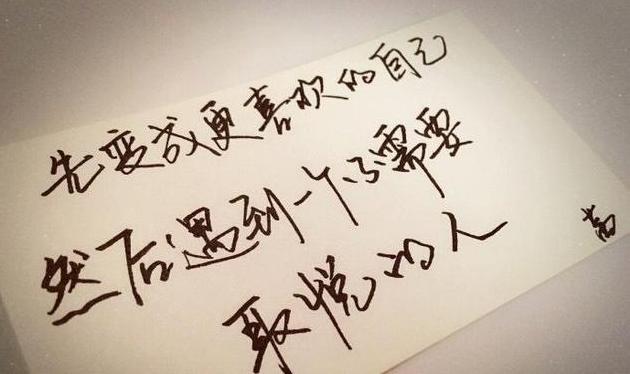 先变成更喜欢的自己
然后遇到一个不需要
取悦的人